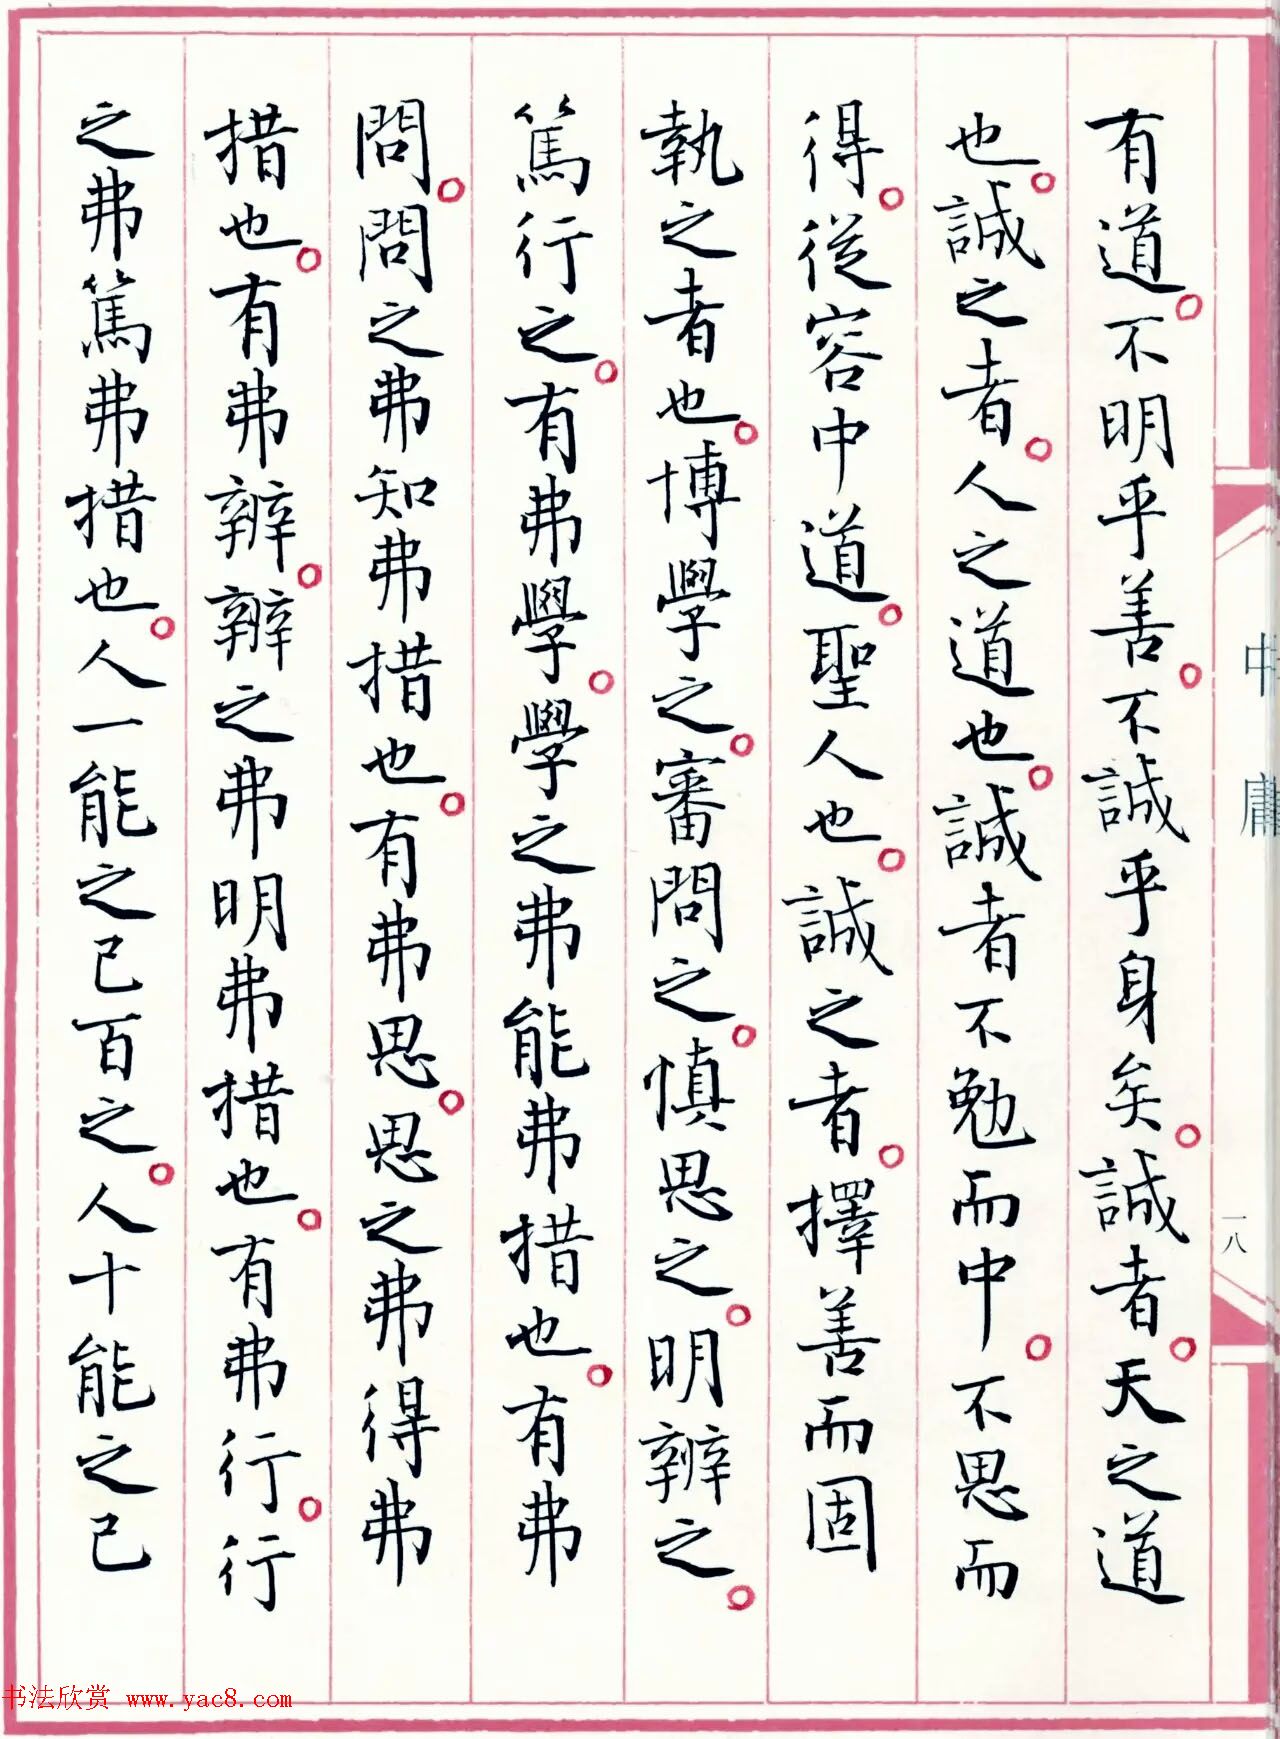 有道。不明乎善。不誠乎身矣。誠者。天之道
也。誠之者。人之道也。誠者不勉而中。不思而
得。從容中道。聖人也。誠之者。擇善而固
執之者也。博學之。審問之。慎思之。明辨之。
篤行之。有弗學。學之弗能弗措也。有弗
問。問之弗知弗措也。有弗思。思之弗得弗
措也。有弗辨。辨之弗明弗措也。有弗行。行
之弗篤弗措也。人一能之己百之。人十能之己
中庸
一八
书法欣赏 www.yac8.com